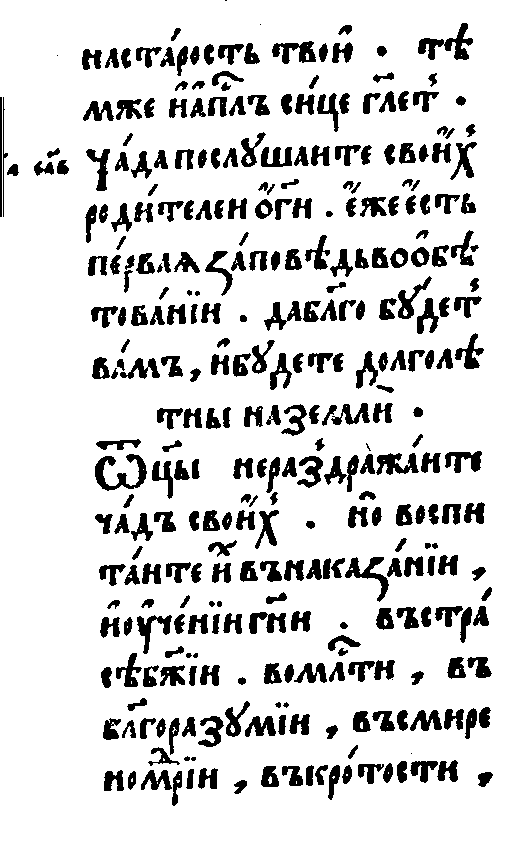 на старость твою҆ . тѣ
мже и҆ а҆пⷭ҇лъ си́це гл҃етъ .
ча́да послꙋшаите свои҆хъ
роди́телеи ѻ҆ гн҃и . е҆же е҆сть
пе́рваѧ за́повѣдь во ѻ҆бѣ
това́нїи . да бл҃го бꙋ́детъ
ва́мъ , и҆ бꙋдете долголѣ́
тны на землѝ .
Ѿцы̀ не раздража́ите
ча́дъ свои҆хъ . но̀ воспи
та́ите и҆хъ въ наказа́нїи ,
и҆ оу҆че́нїи гн҃и . въ стра́
сѣ бж҃їи . во млⷭ҇ти , въ
бл҃горазꙋмїи , въ смире
номꙋ́дрїи , въ кро́тости ,